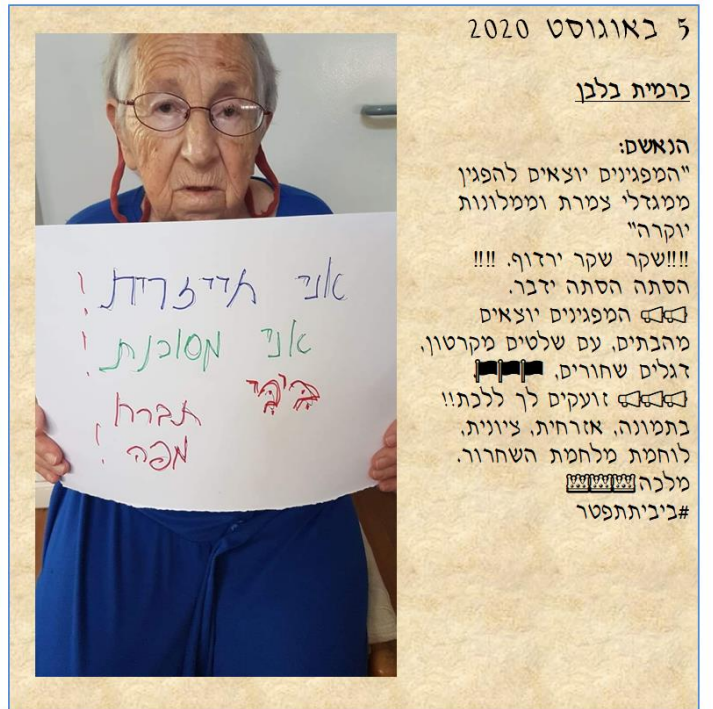 5 באוגוסט 2020
כרמית בלבן
הנאשם:
"המפגינים יוצאים להפגין
ממגדלי צמרת וממלונות
יוקרה"
!!!!שקר שקר ירדוף. !!!!
הסתה הסתה ידבר.
המפגינים יוצאים
מהבתים, עם שלטים מקרטון,
דגלים שחורים,
זועקים לך ללכת!!
בתמונה, אזרחית, ציונית,
לוחמת מלחמת השחרור.
מלכה
#ביביתתפטר
אני חייזרית!
אני מסוכנת!
ביבי תברח
מפה!